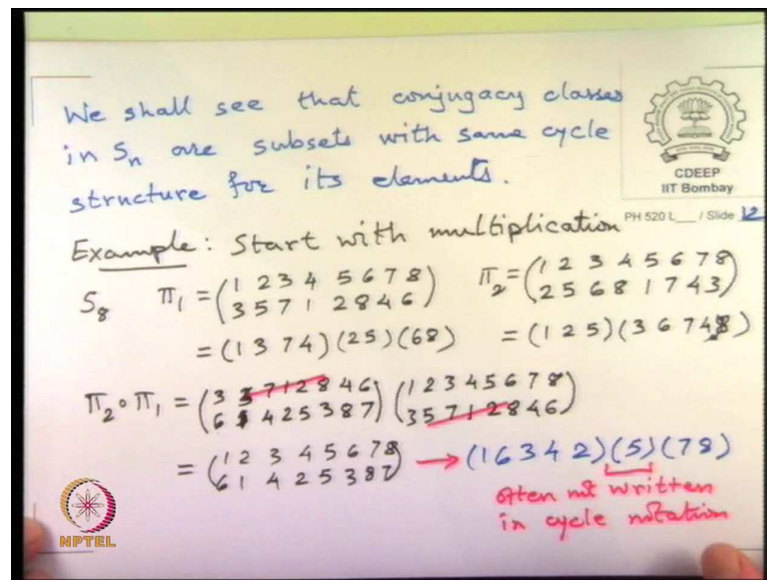 We shall see that conjugacy classes
in Sn are subsets with same cycle
structure for its elements.
CDEEP
IIT Bombay
PH 520 L___ / Slide 12
Example: Start with multiplication
S₈ π₁ = (1 2 3 4 5 6 7 8 π₂ = (1 2 3 4 5 6 7 8
3 5 7 1 2 8 4 6) 2 5 6 8 1 7 4 3)
= (1 3 7 4)(25)(68) = (1 2 5)(3 6 7 4 8)
π₂ ∘ π₁ = (3 5 7 1 2 8 4 6) (1 2 3 4 5 6 7 8
6 1 4 2 5 3 8 7) 3 5 7 1 2 8 4 6)
= (1 2 3 4 5 6 7 8 → (1 6 3 4 2)(5)(7 8)
6 1 4 2 5 3 8 7)
often not written
in cycle notation
NPTEL